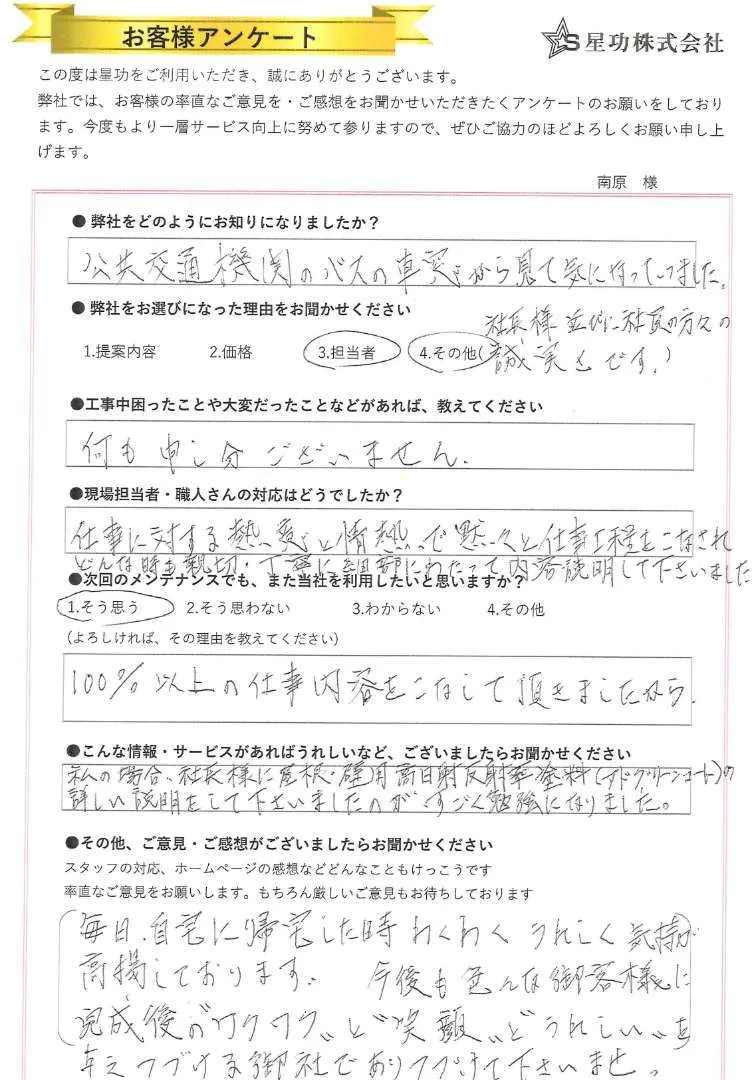 お客様アンケート
星功株式会社
この度は星功をご利用いただき、誠にありがとうございます。
弊社では、お客様の率直なご意見を・ご感想をお聞かせいただきたくアンケートのお願いをしており
ます。今度もより一層サービス向上に努めて参りますので、ぜひご協力のほどよろしくお願い申し上
げます。
南原 様
●弊社をどのようにお知りになりましたか？
公共交通機関のバスの車窓から見て気になっていました。
●弊社をお選びになった理由をお聞かせください
1.提案内容 2.価格 3.担当者 4.その他(社長様並びに社員の方々の
誠実さです。)
●工事中困ったことや大変だったことなどがあれば、教えてください
何も申し分ございません。
●現場担当者・職人さんの対応はどうでしたか？
仕事に対する熱意と情熱で黙々と仕事工程をこなされ
どんな時も親切・丁寧に細部にわたって内容説明して下さいました
●次回のメンテナンスでも、また当社を利用したいと思いますか？
1.そう思う 2.そう思わない 3.わからない 4.その他
（よろしければ、その理由を教えてください）
100%以上の仕事内容をこなして頂きましたから。
●こんな情報・サービスがあればうれしいなど、ございましたらお聞かせください
私の場合、社長様に屋根・壁用高日射反射率塗料(アドグリーンコート)の
詳しい説明をして下さいましたのがすごく勉強になりました。
●その他、ご意見・ご感想がございましたらお聞かせください
スタッフの対応、ホームページの感想などどんなこともけっこうです
率直なご意見をお願いします。もちろん厳しいご意見もお待ちしております
毎日、自宅に帰宅した時わくわくうれしく気持が
高揚しております。 今後も色んな御客様に
完成後の"ワクワク"と"笑顔"と"うれしい"を
与えつづける御社でありつづけて下さいませ。